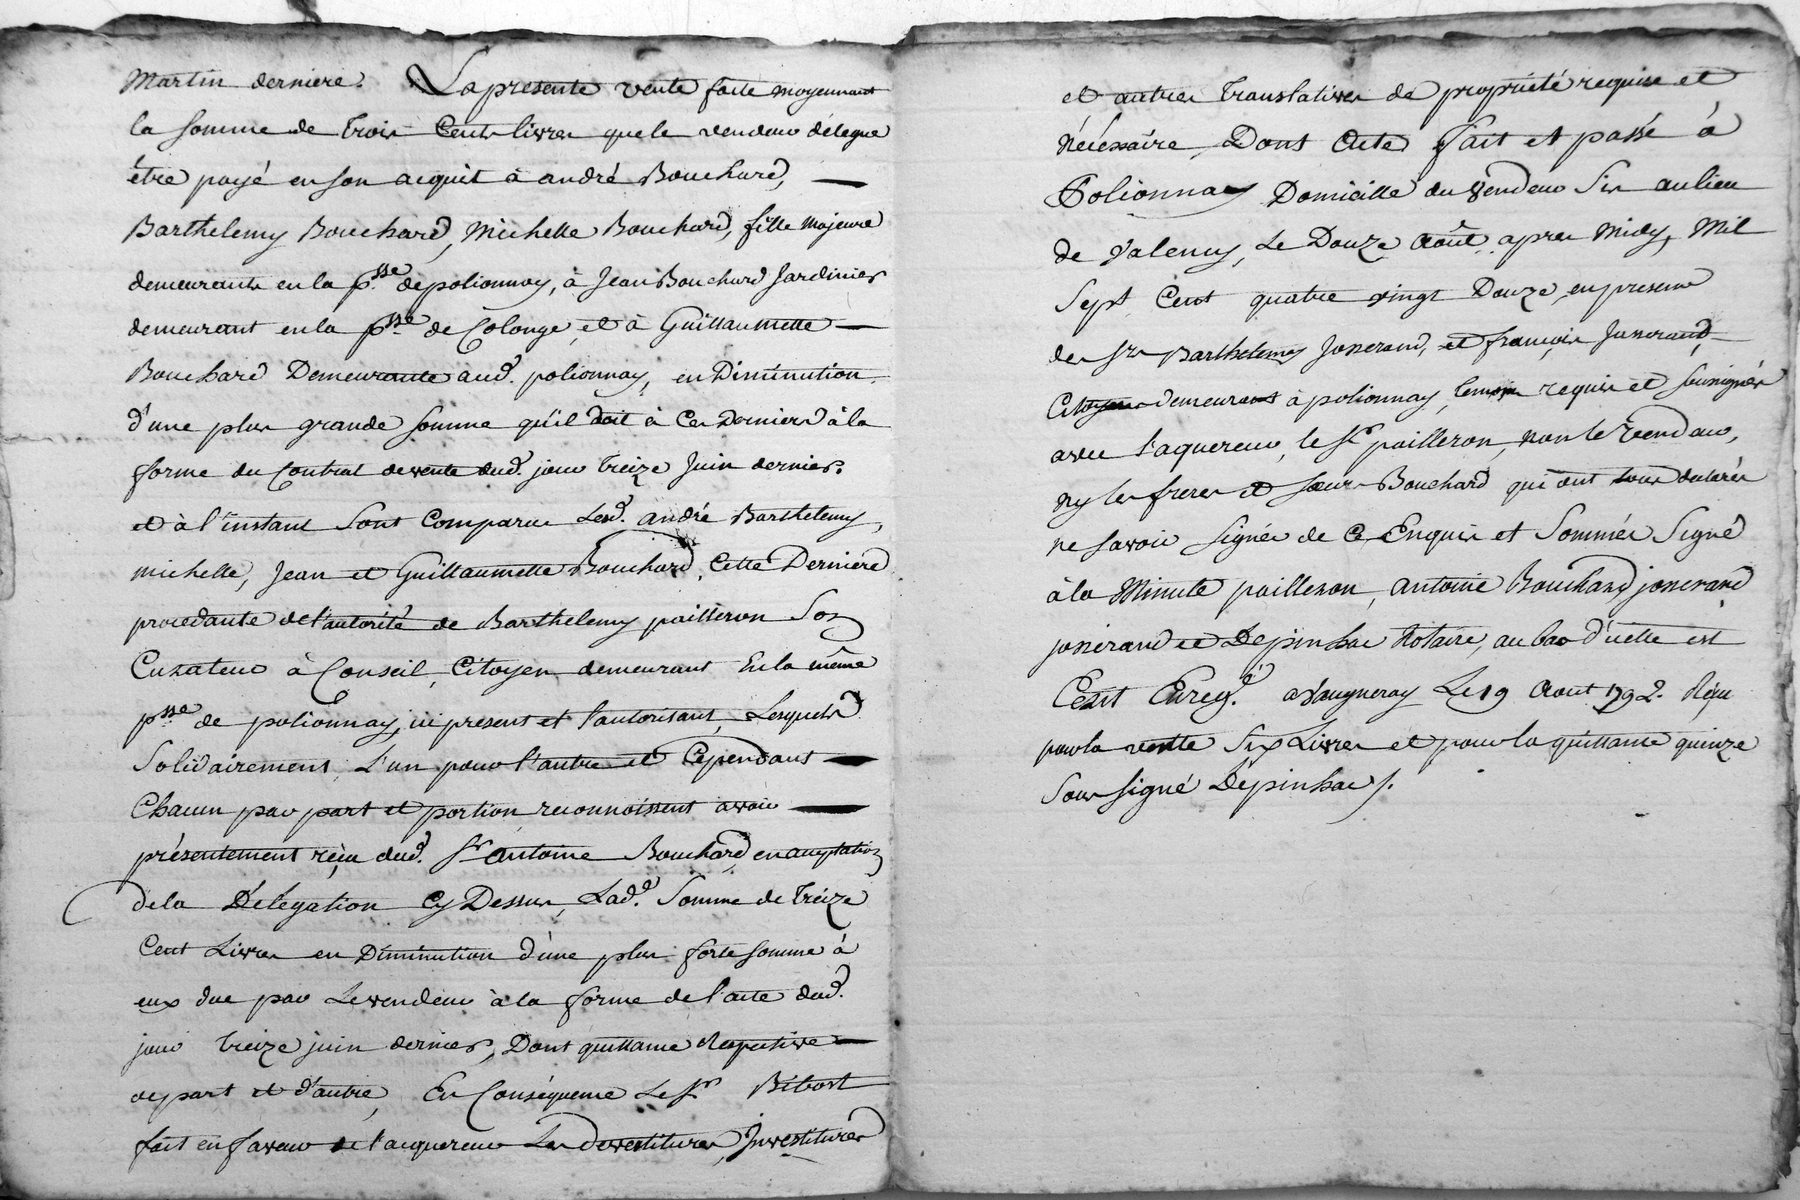 Martin derniere. La presente vente faite moyennant
la somme de trois Cents livres que le vendeur délegue
être payé en son acquit à andré Bouchard,
Barthelemy Bouchard, Michelle Bouchard, fille Majeure
demeurants en la p.sse de polionnay, à Jean Bouchard Jardinier
demeurant en la p.sse de Colonge, et à Guillaumette
Bouchard Demeurante aud. polionnay, en Diminution
d'une plus grande somme qu'il doit à Ces Derniers à la
forme du Contrat de vente dud. jour treize Juin dernier.
et à l'instant sont Comparus Lesd. andré Barthelemy,
michelle, Jean et Guillaumette Bouchard, Cette Derniere
procedante de l'autorité de Barthelemy pailleron Son
Curateur à Conseil, Citoyen demeurant En la même
p.sse de polionnay, ici present et l'autorisant, Lesquels
Solidairement, L'un pour l'autre et Cependant
Chacun par part et portion reconnoissent avoir
présentement réçu dud. Sr antoine Bouchard, en acceptation
de la Délégation Cy Dessus, Lad.e Somme de treize
Cent Livres en Diminution d'une plus forte somme à
eux due par Le vendeur à la forme de l'acte dud.
jour treize juin dernier, Dont quittance Respective
de part et d'autre, En Conséquence Le Sr Bibost
fait en faveur de l'acquereur Les Devestitures, Investitures
et autres translatives de propriété requise et
nécéssaire, Dont Acte, Fait et passé à
Polionnay Domicille du Vendeur Sis au lieu
de Valency, Le Douze Août, apres Midy, Mil
Sept Cent quatre vingt Douze, en presence
des Srs Barthelemy Josserand, et françois Josserand,
Citoyens demeurants à polionnay, temoins requis et soussignés
avec l'aquereur, le Sr pailleron, non le vendeur,
ny les freres et sœurs Bouchard qui ont tous declarés
ne savoir signér de Ce Enquis et Sommés Signé
à la Minute pailleron, antoine Bouchard, josserand
josserand et Depinhac Notaire, au bas d'icelle est
Ecrit Enreg.é a Vaugneray Le 19 Aout 1792. Réçu
pour la vente Six Livres et pour la quittance quinze
Sous signé Dépinhac /.